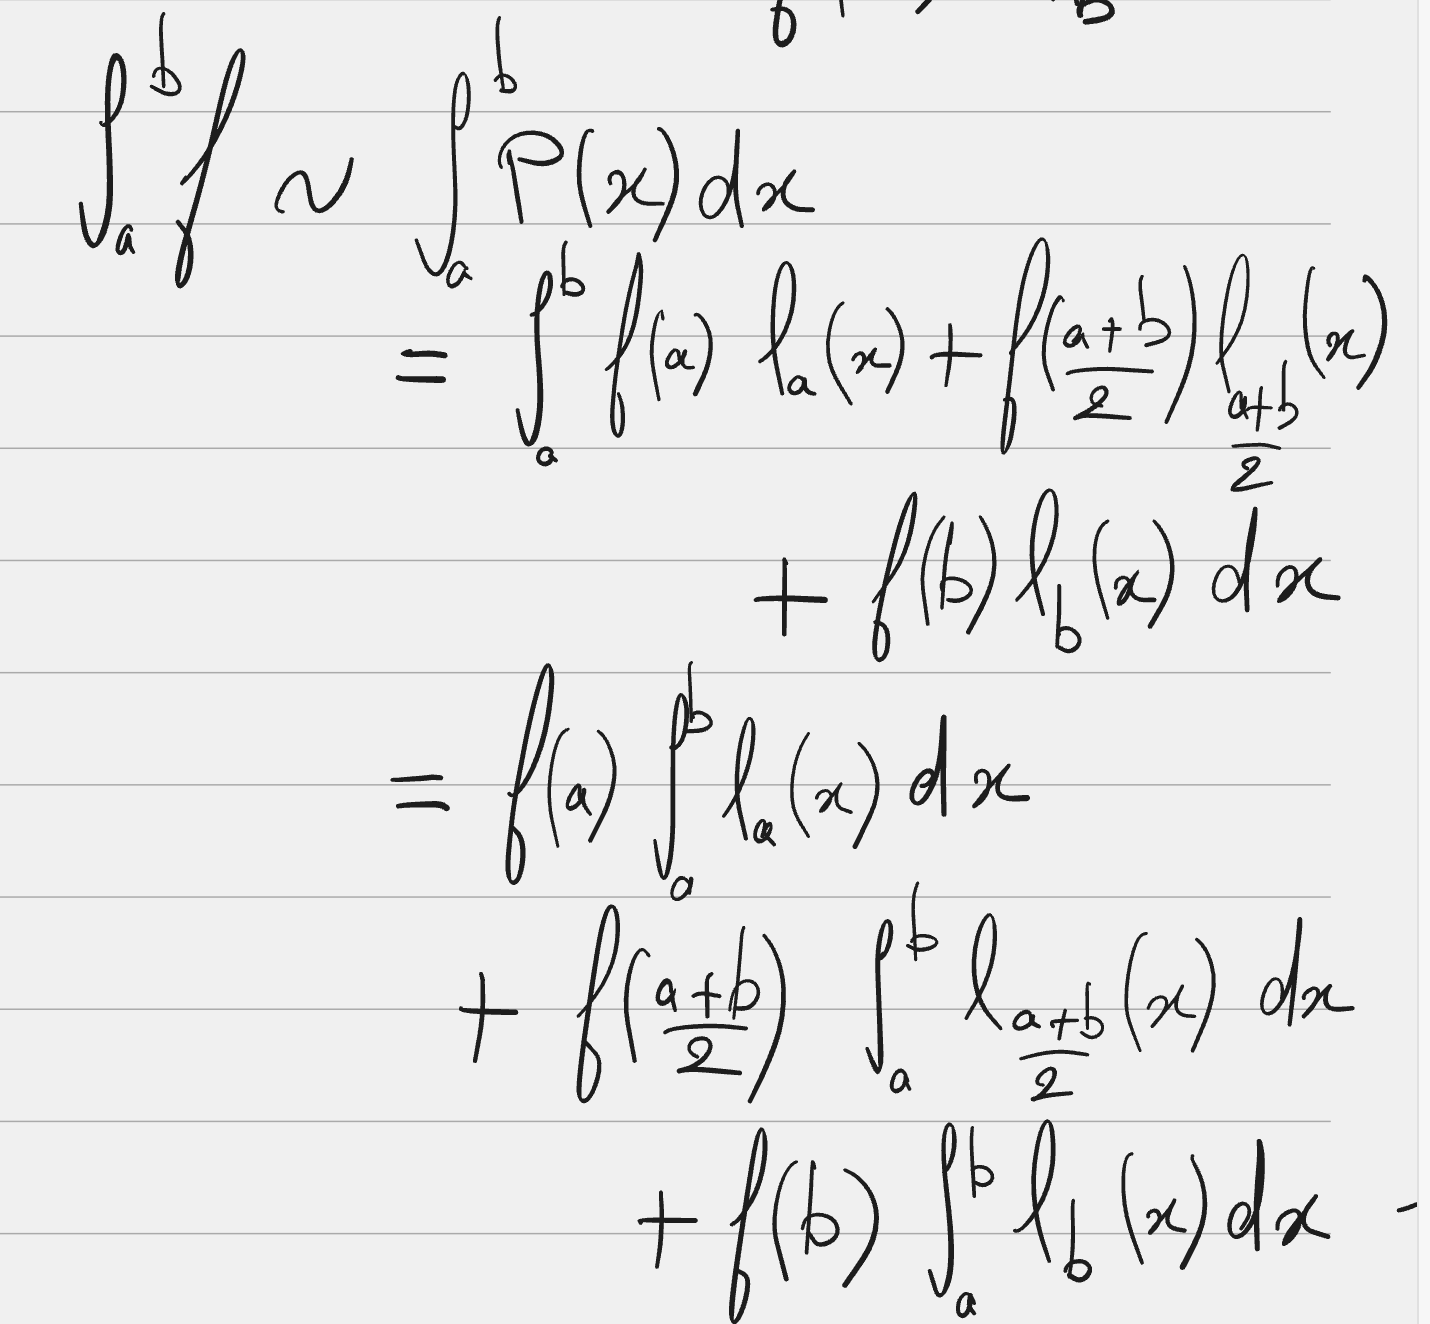 ∫_a^b f ~ ∫_a^b P(x) dx
= ∫_a^b f(a) l_a(x) + f((a+b)/2) l_{(a+b)/2}(x)
+ f(b) l_b(x) dx
= f(a) ∫_a^b l_a(x) dx
+ f((a+b)/2) ∫_a^b l_{(a+b)/2}(x) dx
+ f(b) ∫_a^b l_b(x) dx